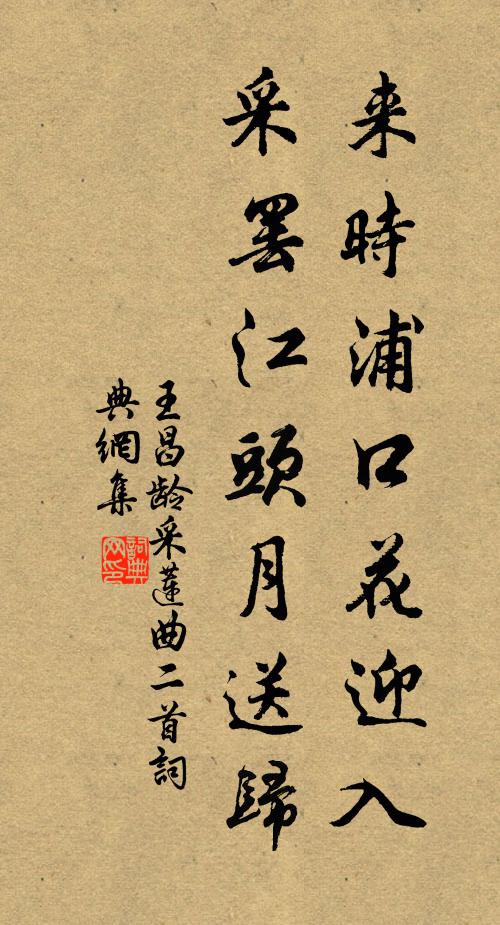 来時浦口花迎入
采罷江頭月送歸
王昌龄采蓮曲二首詞
典網集
詞典網印